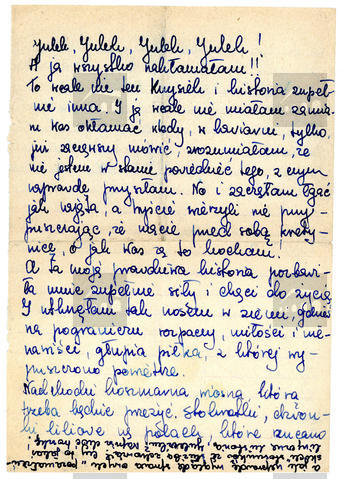 Julek, Julek, Julek, Julek!
A ja wszystko nakłamałam!!
To wcale nie ten Krysiek i historia zupeł-
nie inna. I ja wcale nie miałam zamia-
ru Was okłamać wtedy, w kawiarni, tylko
już zacząwszy mówić, zrozumiałam, że
nie jestem w stanie powiedzieć tego, o czym
naprawdę myślałam. No i zaczęłam łgać
jak najęta, a wyście wierzyli nie przy-
puszczając, że macie przed sobą kręty-
nicę, o jak Was za to kocham.
A ta moja prawdziwa historia pozbawi-
ła mnie zupełnie siły i chęci do życia.
I utknęłam tak nosem w ziemi, gdzieś
na pograniczu rozpaczy, miłości i nie-
nawiści, głupia piłka, z której wy-
puszczono powietrze.
Nadchodzi koszmarna wiosna, którą
trzeba będzie przeżyć.
na polach, które rzucano